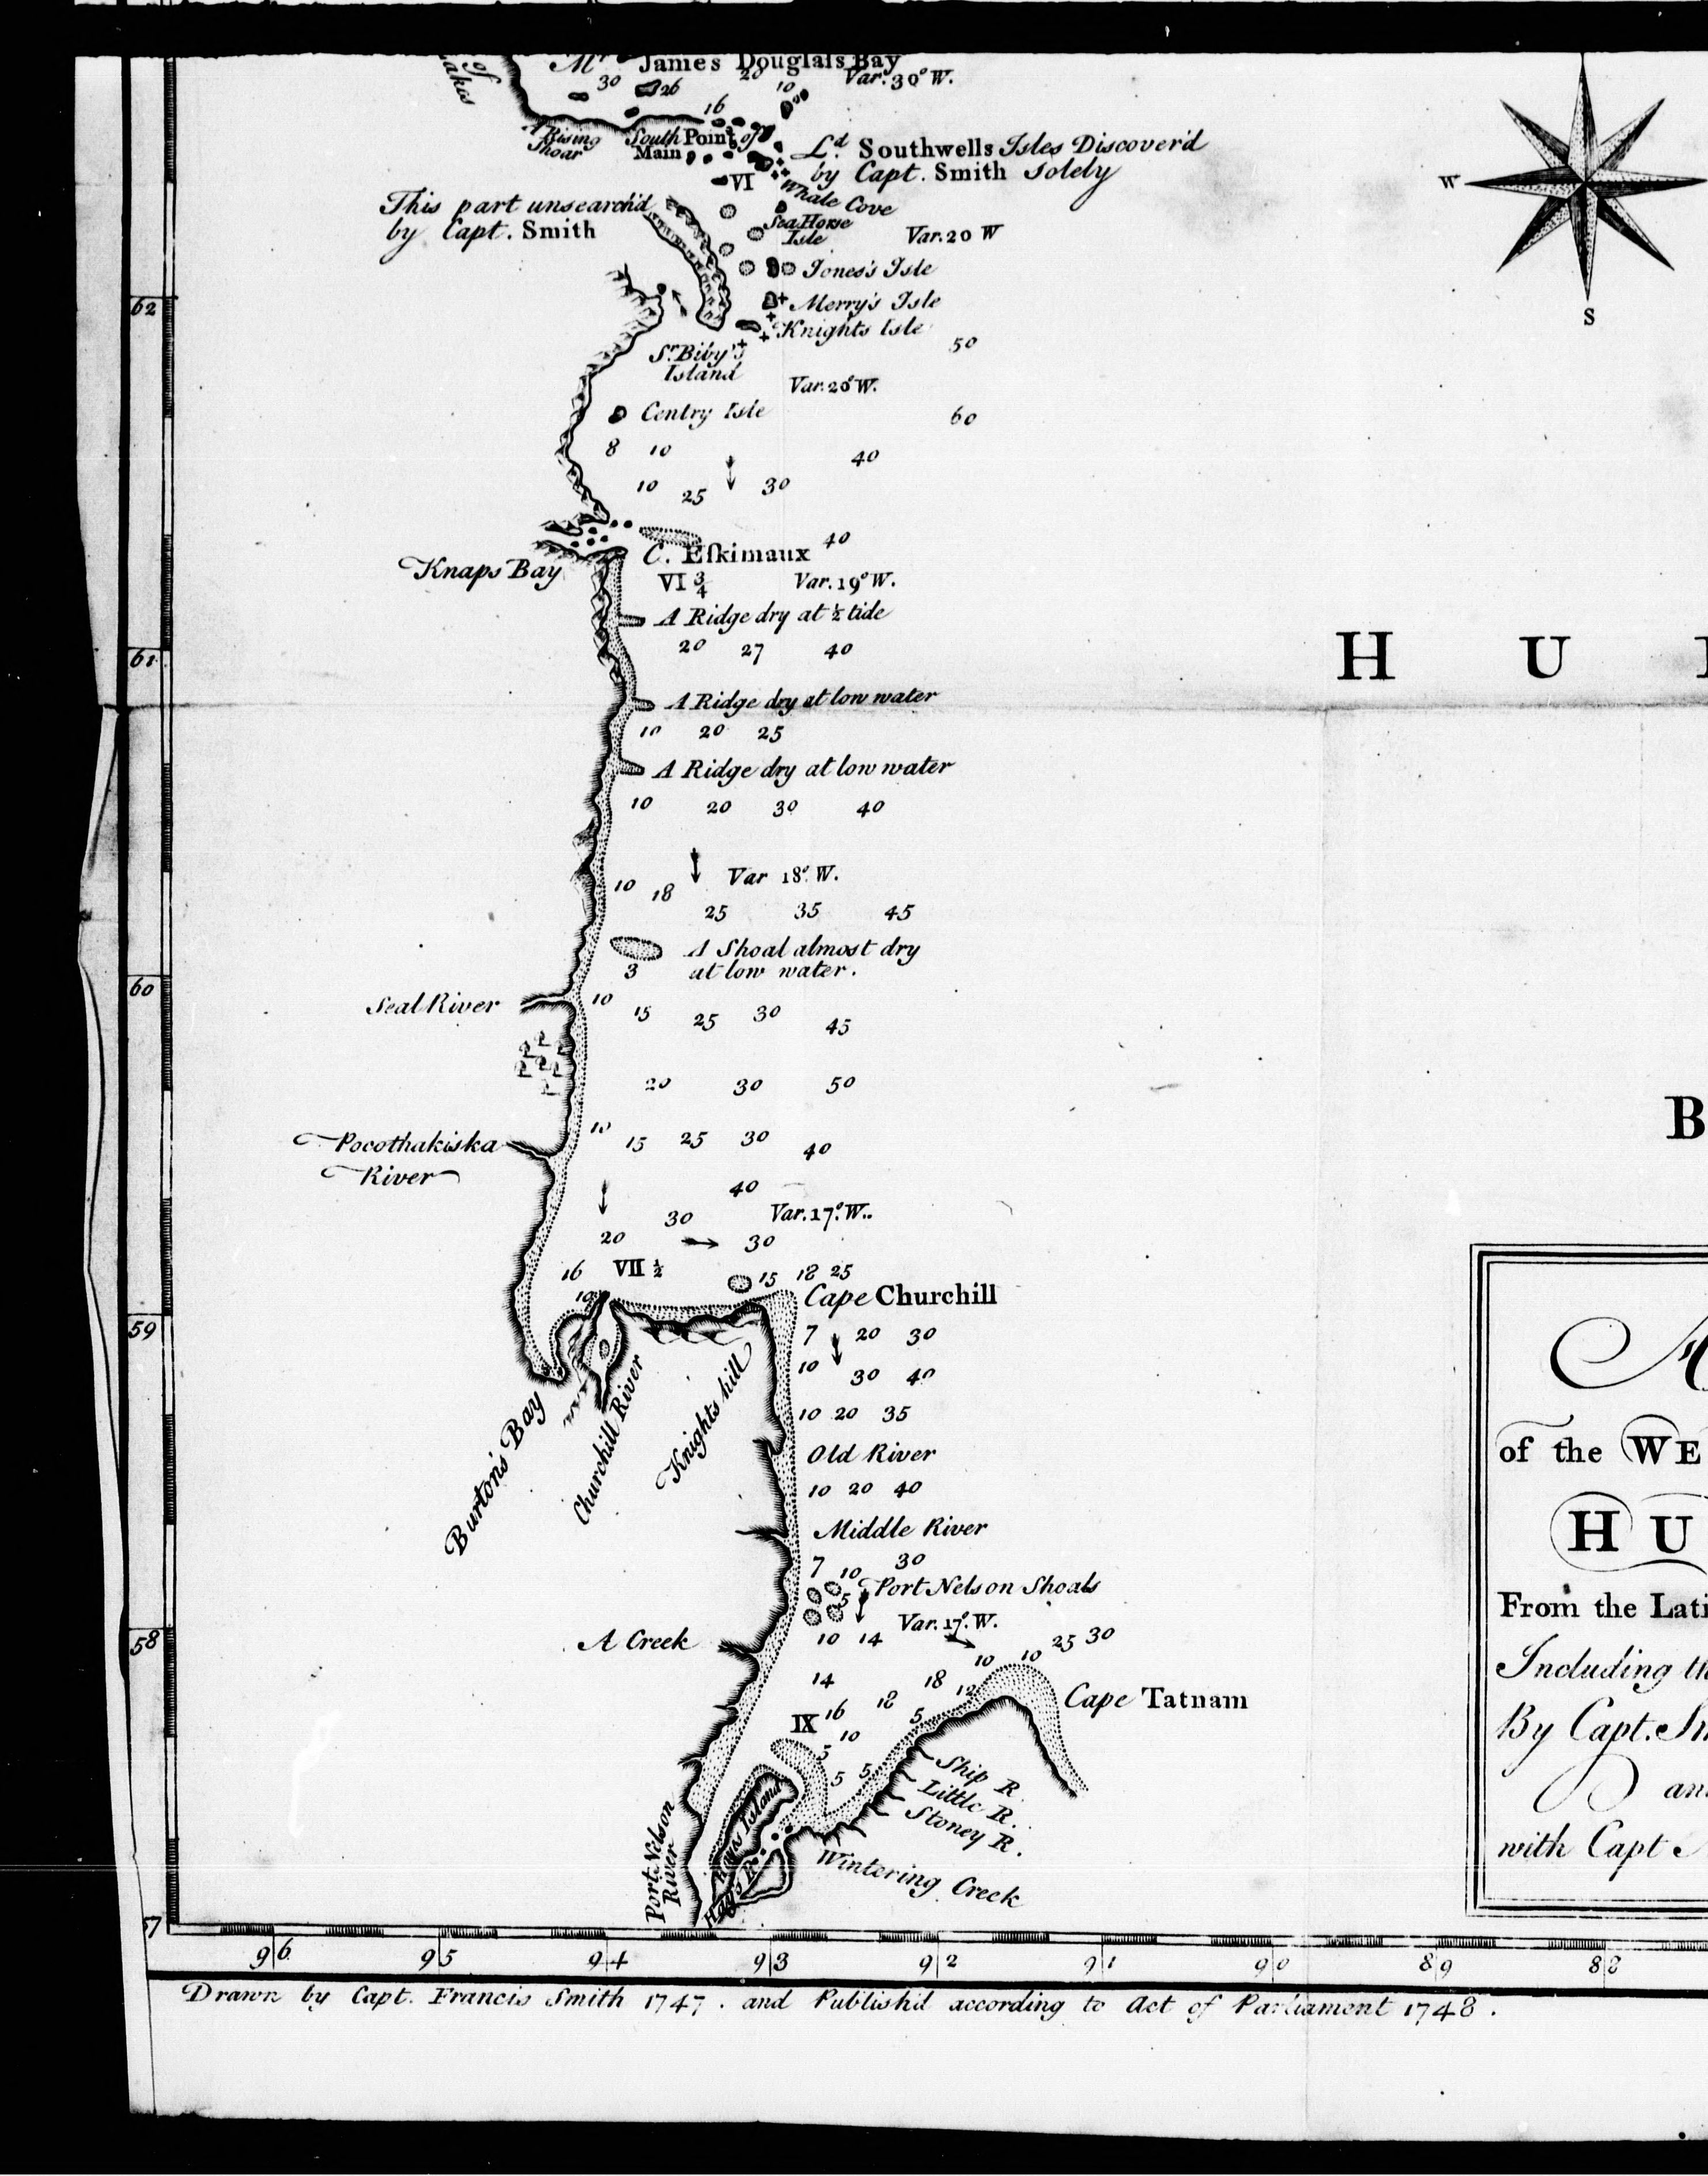 of
Lakes
Mr. James Douglass Bay
30 26 20 10 Var. 30° W.
16
A Rising
Shoar
South Point of
Main
Ld. Southwells Isles Discover'd
by Capt. Smith Solely
VI
Whale Cove
This part unsearch'd
by Capt. Smith
Sea Horse
Isle
Var. 20 W
Jones's Isle
62
Merry's Isle
Knights Isle
50
Sr. Biby's
Island
Var. 20° W.
Centry Isle
60
8 10
40
10 25 30
40
C. Eſkimaux
Knaps Bay
VI 3/4 Var. 19° W.
A Ridge dry at ½ tide
20 27 40
61
A Ridge dry at low water
10 20 25
A Ridge dry at low water
10 20 30 40
10 18 Var 18° W.
25 35 45
A Shoal almost dry
at low water.
3
60
Seal River
10 15 25 30 45
20 30 50
10 15 25 30 40
Pocothakiska
River
40
30 Var. 17° W.
20 30
16 VII ½ 15 18 25
10
Cape Churchill
59
7 20 30
10 30 40
10 20 35
Burton's Bay
Churchill River
Knights hill
Old River
10 20 40
Middle River
7 10 30
Port Nelson Shoals
5
Var. 17° W.
58
A Creek
10 14 10 10 25 30
14 18 12
Cape Tatnam
IX 16 18 5
10
5
5 5
Ship R.
Little R.
Stoney R.
Wintering Creek
Port Nelson
River
Hays Island
Hays R.
57
96 95 94 93 92 91 90 89 88
W
S
H U
B
of the WE
HU
From the Lati
Including th
By Capt. Sm
an
with Capt
Drawn by Capt. Francis Smith 1747. and Publish'd according to Act of Parliament 1748.